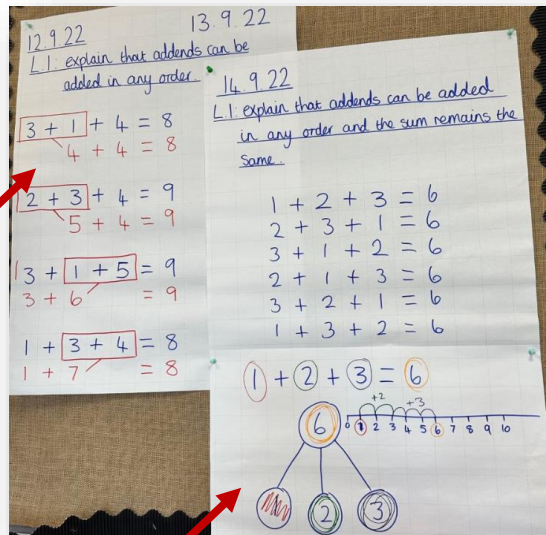 12.9.22 13.9.22
L.I: explain that addends can be
added in any order.
3 + 1 + 4 = 8
4 + 4 = 8
2 + 3 + 4 = 9
5 + 4 = 9
3 + 1 + 5 = 9
3 + 6 = 9
1 + 3 + 4 = 8
1 + 7 = 8
14.9.22
L.I: explain that addends can be added
in any order and the sum remains the
same.
1 + 2 + 3 = 6
2 + 3 + 1 = 6
3 + 1 + 2 = 6
2 + 1 + 3 = 6
3 + 2 + 1 = 6
1 + 3 + 2 = 6
1 + 2 + 3 = 6
+2 +3
0 1 2 3 4 5 6 7 8 9 10
6
1 2 3